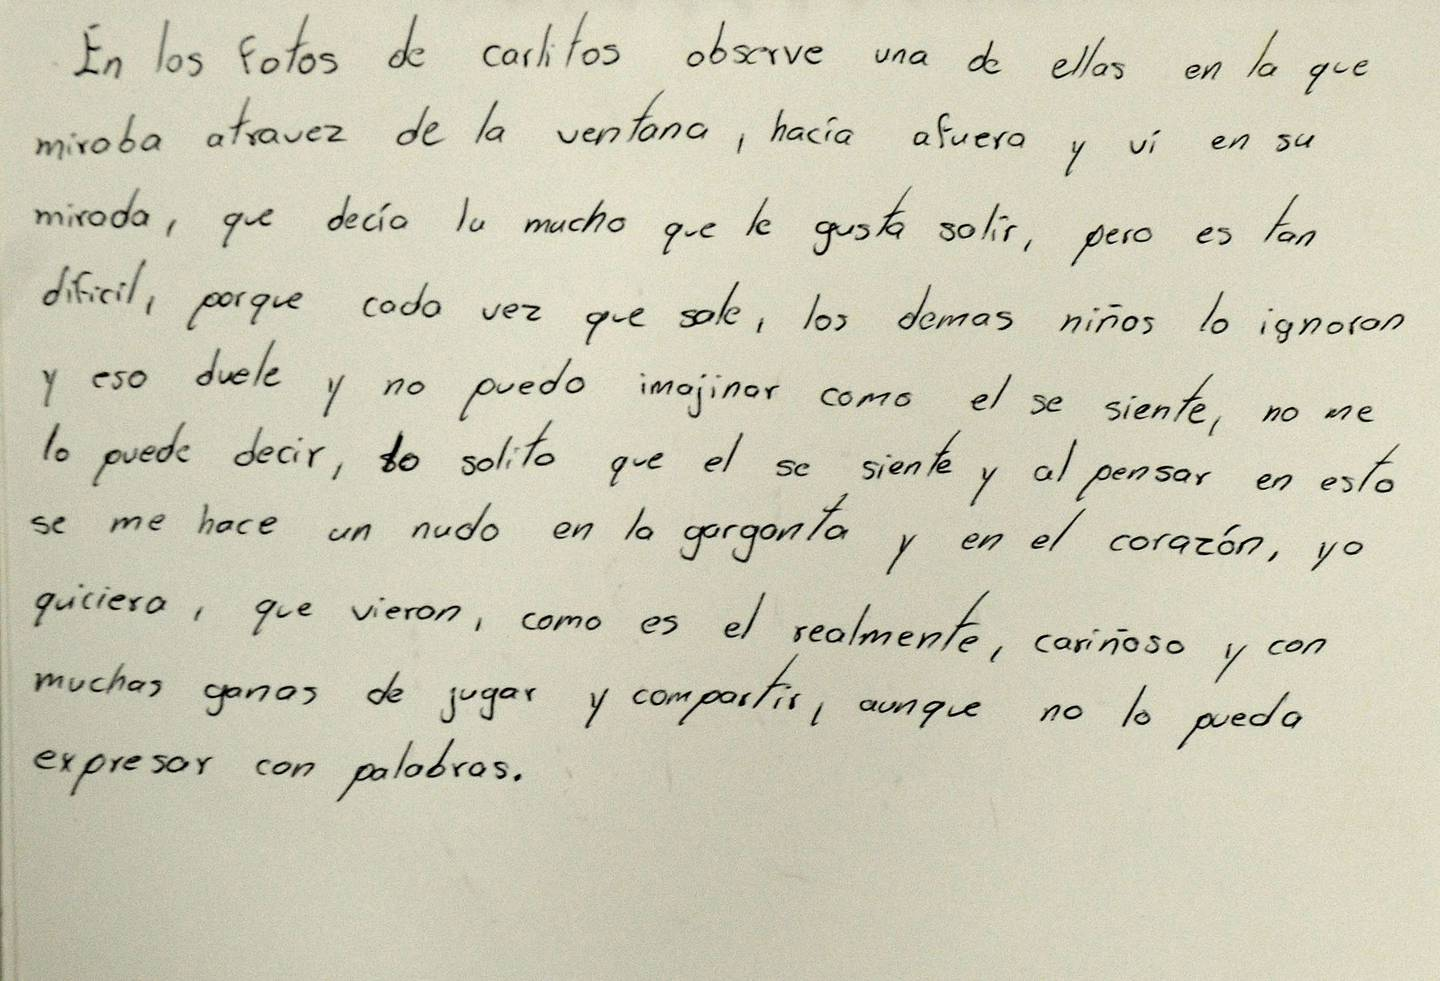 En las fotos de carlitos observe una de ellas en la que
miraba atravez de la ventana, hacía afuera y ví en su
mirada, que decía lu mucho que le gusta salir, pero es tan
dificil, porque cada vez que sale, los demas niños lo ignoran
y eso duele y no puedo imajinar como el se siente, no me
lo puede decir, lo solito que el se siente y al pensar en esto
se me hace un nudo en la garganta y en el corazón, yo
quiciera, que vieran, como es el realmente, cariñoso y con
muchas ganas de jugar y compartir, aunque no lo pueda
expresar con palabras.